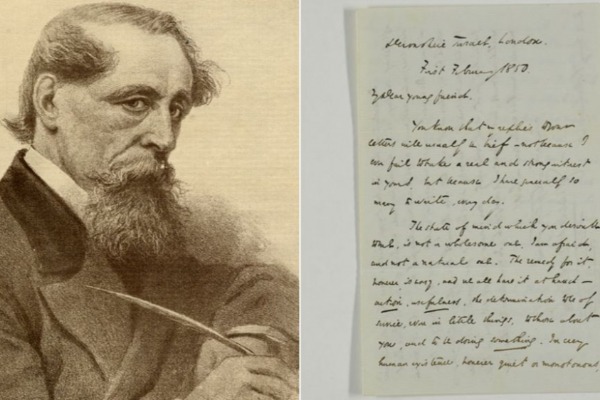 Devonshire Terrace, London.
First February 1850.
My dear young friend.
You know that my replies to your
letters will usually be brief – not because I
ever fail to take a real and strong interest
in yours, but because I have generally so
many to write, every day.
The state of mind which you describe
to me, is not a wholesome one, I am afraid,
and not a natural one. The remedy for it
however, is easy, and we all have it at hand –
action, usefulness, the determination to be of
service, even in little things, to those about
you, and to be doing something. In every
human existence, however quiet or monotonous,